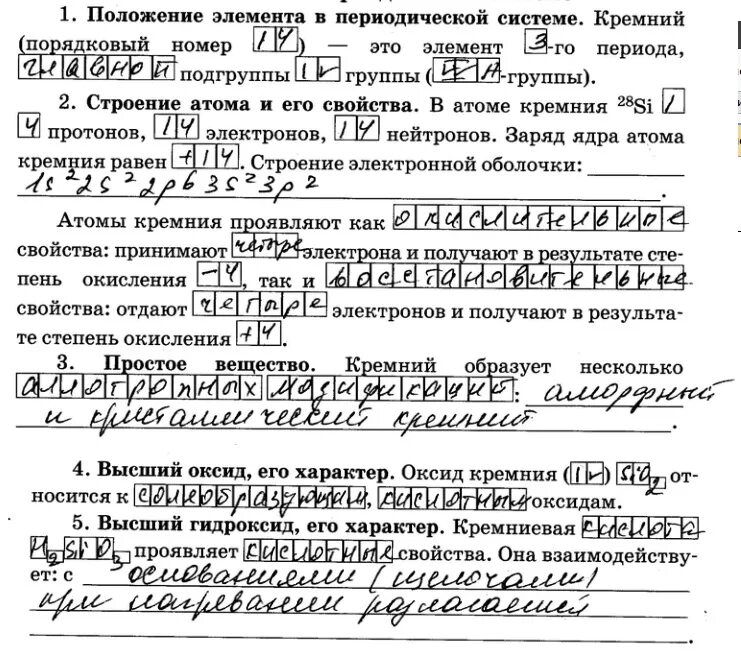 1. Положение элемента в периодической системе. Кремний
(порядковый номер 14) — это элемент 3-го периода,
главной подгруппы IV группы (IVA-группы).
2. Строение атома и его свойства. В атоме кремния ²⁸Si 1
4 протонов, 14 электронов, 14 нейтронов. Заряд ядра атома
кремния равен +14. Строение электронной оболочки:
1s²2s²2p63s²3p².
Атомы кремния проявляют как окислительные
свойства: принимают четыре электрона и получают в результате сте-
пень окисления -4, так и восстановительные
свойства: отдают четыре электронов и получают в результа-
те степень окисления +4.
3. Простое вещество. Кремний образует несколько
аллотропных модификаций: аморфный
и кристаллический кремний.
4. Высший оксид, его характер. Оксид кремния (IV) SiO₂ от-
носится к солеобразующим, кислотным оксидам.
5. Высший гидроксид, его характер. Кремниевая кислота
H₂SiO₃ проявляет кислотные свойства. Она взаимодейству-
ет: с основаниями (щелочами)
при нагревании разлагается